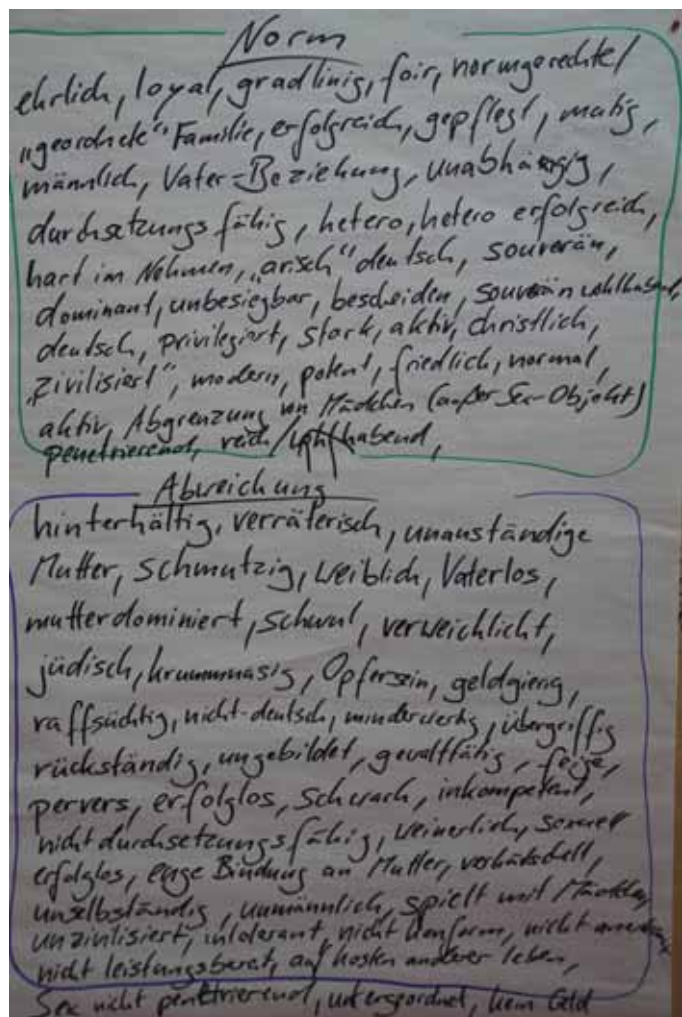 Norm
ehrlich, loyal, gradlinig, fair, normgerechte/
„geordnete“ Familie, erfolgreich, gepflegt, mutig,
männlich, Vater-Beziehung, unabhängig,
durchsetzungsfähig, hetero, hetero erfolgreich,
hart im Nehmen, „arisch“ deutsch, souverän,
dominant, unbesiegbar, bescheiden, souverän wohlhabend,
deutsch, privilegiert, stark, aktiv, christlich,
„zivilisiert“, modern, potent, friedlich, normal,
aktiv, Abgrenzung von Mädchen (außer Sex-Objekt)
penetrierend, reich/wohlhabend,
Abweichung
hinterhältig, verräterisch, unanständige
Mutter, schmutzig, weiblich, Vaterlos,
mutterdominiert, schwul, verweichlicht,
jüdisch, krummnasig, Opfersein, geldgierig,
raffsüchtig, nicht-deutsch, minderwertig, übergriffig
rückständig, ungebildet, gewalttätig, feige,
pervers, erfolglos, schwach, inkompetent,
nicht durchsetzungsfähig, weinerlich, sexuell
erfolglos, enge Bindung an Mutter, verhätschelt,
unselbständig, unmännlich, spielt mit Mädchen,
unzivilisiert, intolerant, nicht konform, nicht
nicht leistungsbereit, auf Kosten anderer leben,
Sex nicht penetrierend, untergeordnet, kein Geld